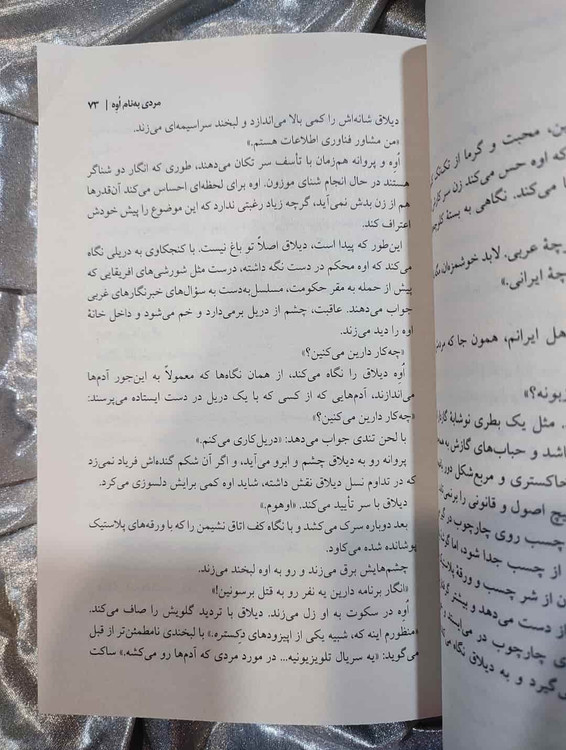 مردی به‌نام اُوه | ۷۳
دیلاق شانه‌اش را کمی بالا می‌اندازد و لبخند سراسیمه‌ای می‌زند.
«من مشاور فناوری اطلاعات هستم.»
اُوه و پروانه هم‌زمان با تأسف سر تکان می‌دهند، طوری که انگار دو شناگر
هستند در حال انجام شنای موزون. اوه برای لحظه‌ای احساس می‌کند آن‌قدرها
هم از زن بدش نمی‌آید، گرچه زیاد رغبتی ندارد که این موضوع را پیش خودش
اعتراف کند.
این‌طور که پیدا است، دیلاق اصلاً تو باغ نیست. با کنجکاوی به دریلی نگاه
می‌کند که اوه محکم در دست نگه داشته، درست مثل شورشی‌های افریقایی که
پیش از حمله به مقر حکومت، مسلسل‌به‌دست به سؤال‌های خبرنگارهای غربی
جواب می‌دهند. عاقبت، چشم از دریل برمی‌دارد و خم می‌شود و داخل خانهٔ
اوه را دید می‌زند.
«چه‌کار دارین می‌کنین؟»
اُوه دیلاق را نگاه می‌کند، از همان نگاه‌ها که معمولاً به این‌جور آدم‌ها
می‌اندازند، آدم‌هایی که از کسی که با یک دریل در دست ایستاده می‌پرسند:
«چه‌کار دارین می‌کنین؟»
با لحن تندی جواب می‌دهد: «دریل‌کاری می‌کنم.»
پروانه رو به دیلاق چشم و ابرو می‌آید، و اگر آن شکم گنده‌اش فریاد نمی‌زد
که در تداوم نسل دیلاق نقش داشته، شاید اوه کمی برایش دلسوزی می‌کرد.
دیلاق با سر تأیید می‌کند. «اوهوم.»
بعد دوباره سرک می‌کشد و با نگاه کف اتاق نشیمن را که با ورقه‌های پلاستیک
پوشانده شده می‌کاود.
چشم‌هایش برق می‌زند و رو به اوه لبخند می‌زند.
«انگار برنامه دارین یه نفر رو به قتل برسونین!»
اُوه در سکوت به او زل می‌زند. دیلاق با تردید گلویش را صاف می‌کند.
«منظورم اینه که، شبیه یکی از اپیزودهای دکستره.» با لبخندی نامطمئن‌تر از قبل
می‌گوید: «یه سریال تلویزیونیه... در مورد مردی که آدم‌ها رو می‌کشه.» ساکت
ین، محبت و گرما از تک‌تک
که اوه حس می‌کند زن سر کارش
می‌کند. نگاهی به بستهٔ
رچهٔ عربی. لابد خوشمزه‌ان
چهٔ ایرانی.»
هل ایرانم، همون جا که
زیونه؟»
. مثل یک بطری نوشابهٔ
شد و حباب‌های گازش به
خاکستری و مربع‌شکل دور
یچ اصول و قانونی را
چسب روی چارچوب در
از چسب جدا شود، اما
ن از شر چسب و ورقهٔ
از دست می‌دهد و بیشتر
ی چارچوب در می‌ایستد و
گیرد و به دیلاق نگاه